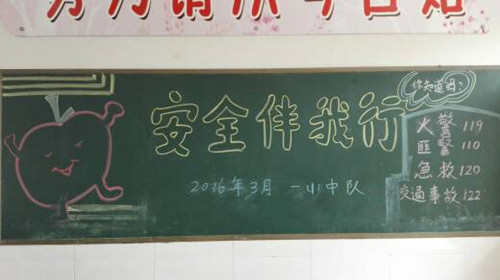 安全伴我行
2016年3月 一小中队
你知道吗?
火警 119
匪警 110
急救 120
交通事故 122